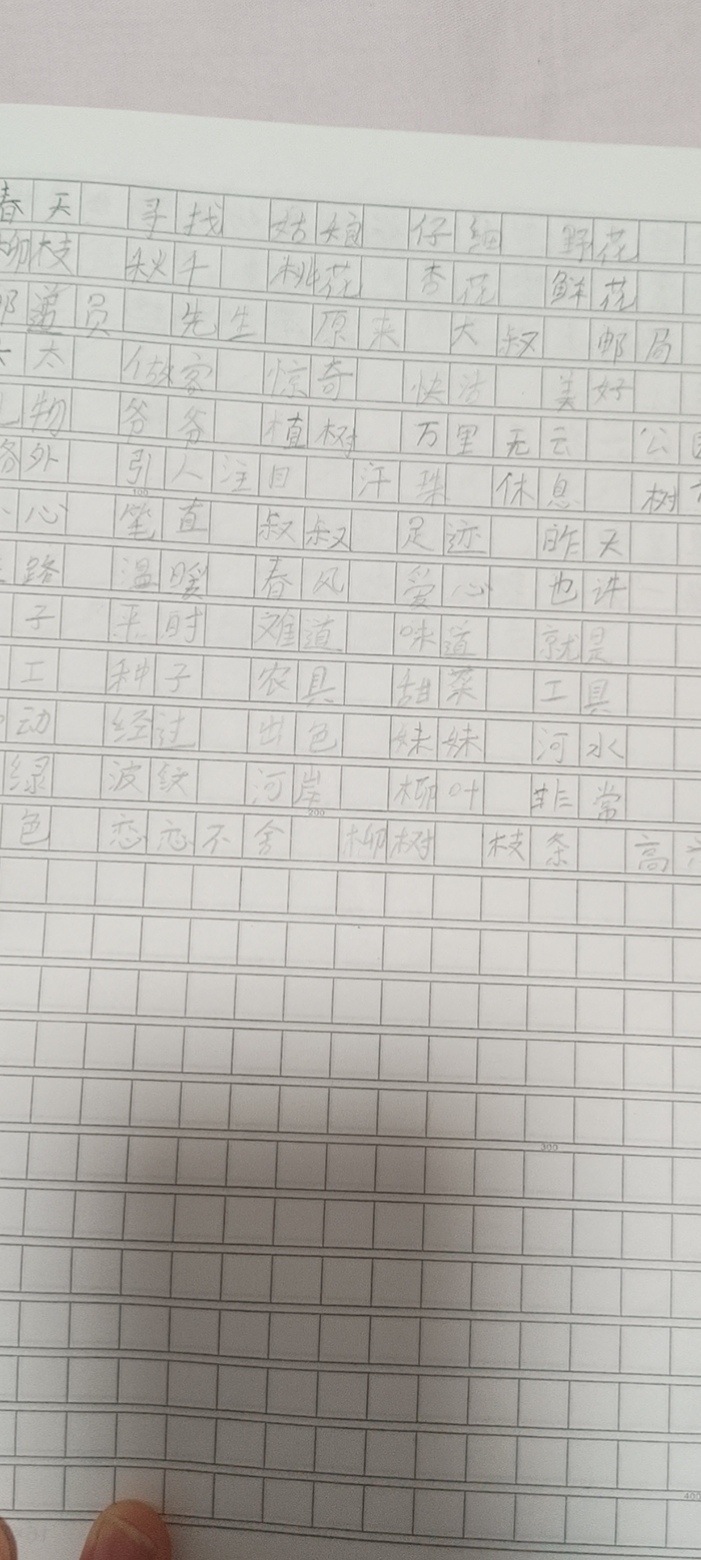 春天 寻找 姑娘 仔细 野花
柳枝 秋千 桃花 杏花 鲜花
邮递员 先生 原来 大叔 邮局
太太 做客 惊奇 快活 美好
礼物 爷爷 植树 万里无云 公园
格外 引人注目 汗珠 休息 树
小心 笔直 叔叔 足迹 昨天
路 温暖 春风 爱心 也许
子 平时 难道 味道 就是
工 种子 农具 甜菜 工具
动 经过 出色 妹妹 河水
绿 波纹 河岸 柳叶 非常
色 恋恋不舍 柳树 枝条 高兴
100
200
300
400